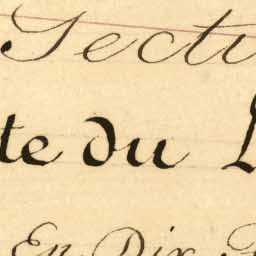 Secti
te du L
En Dix